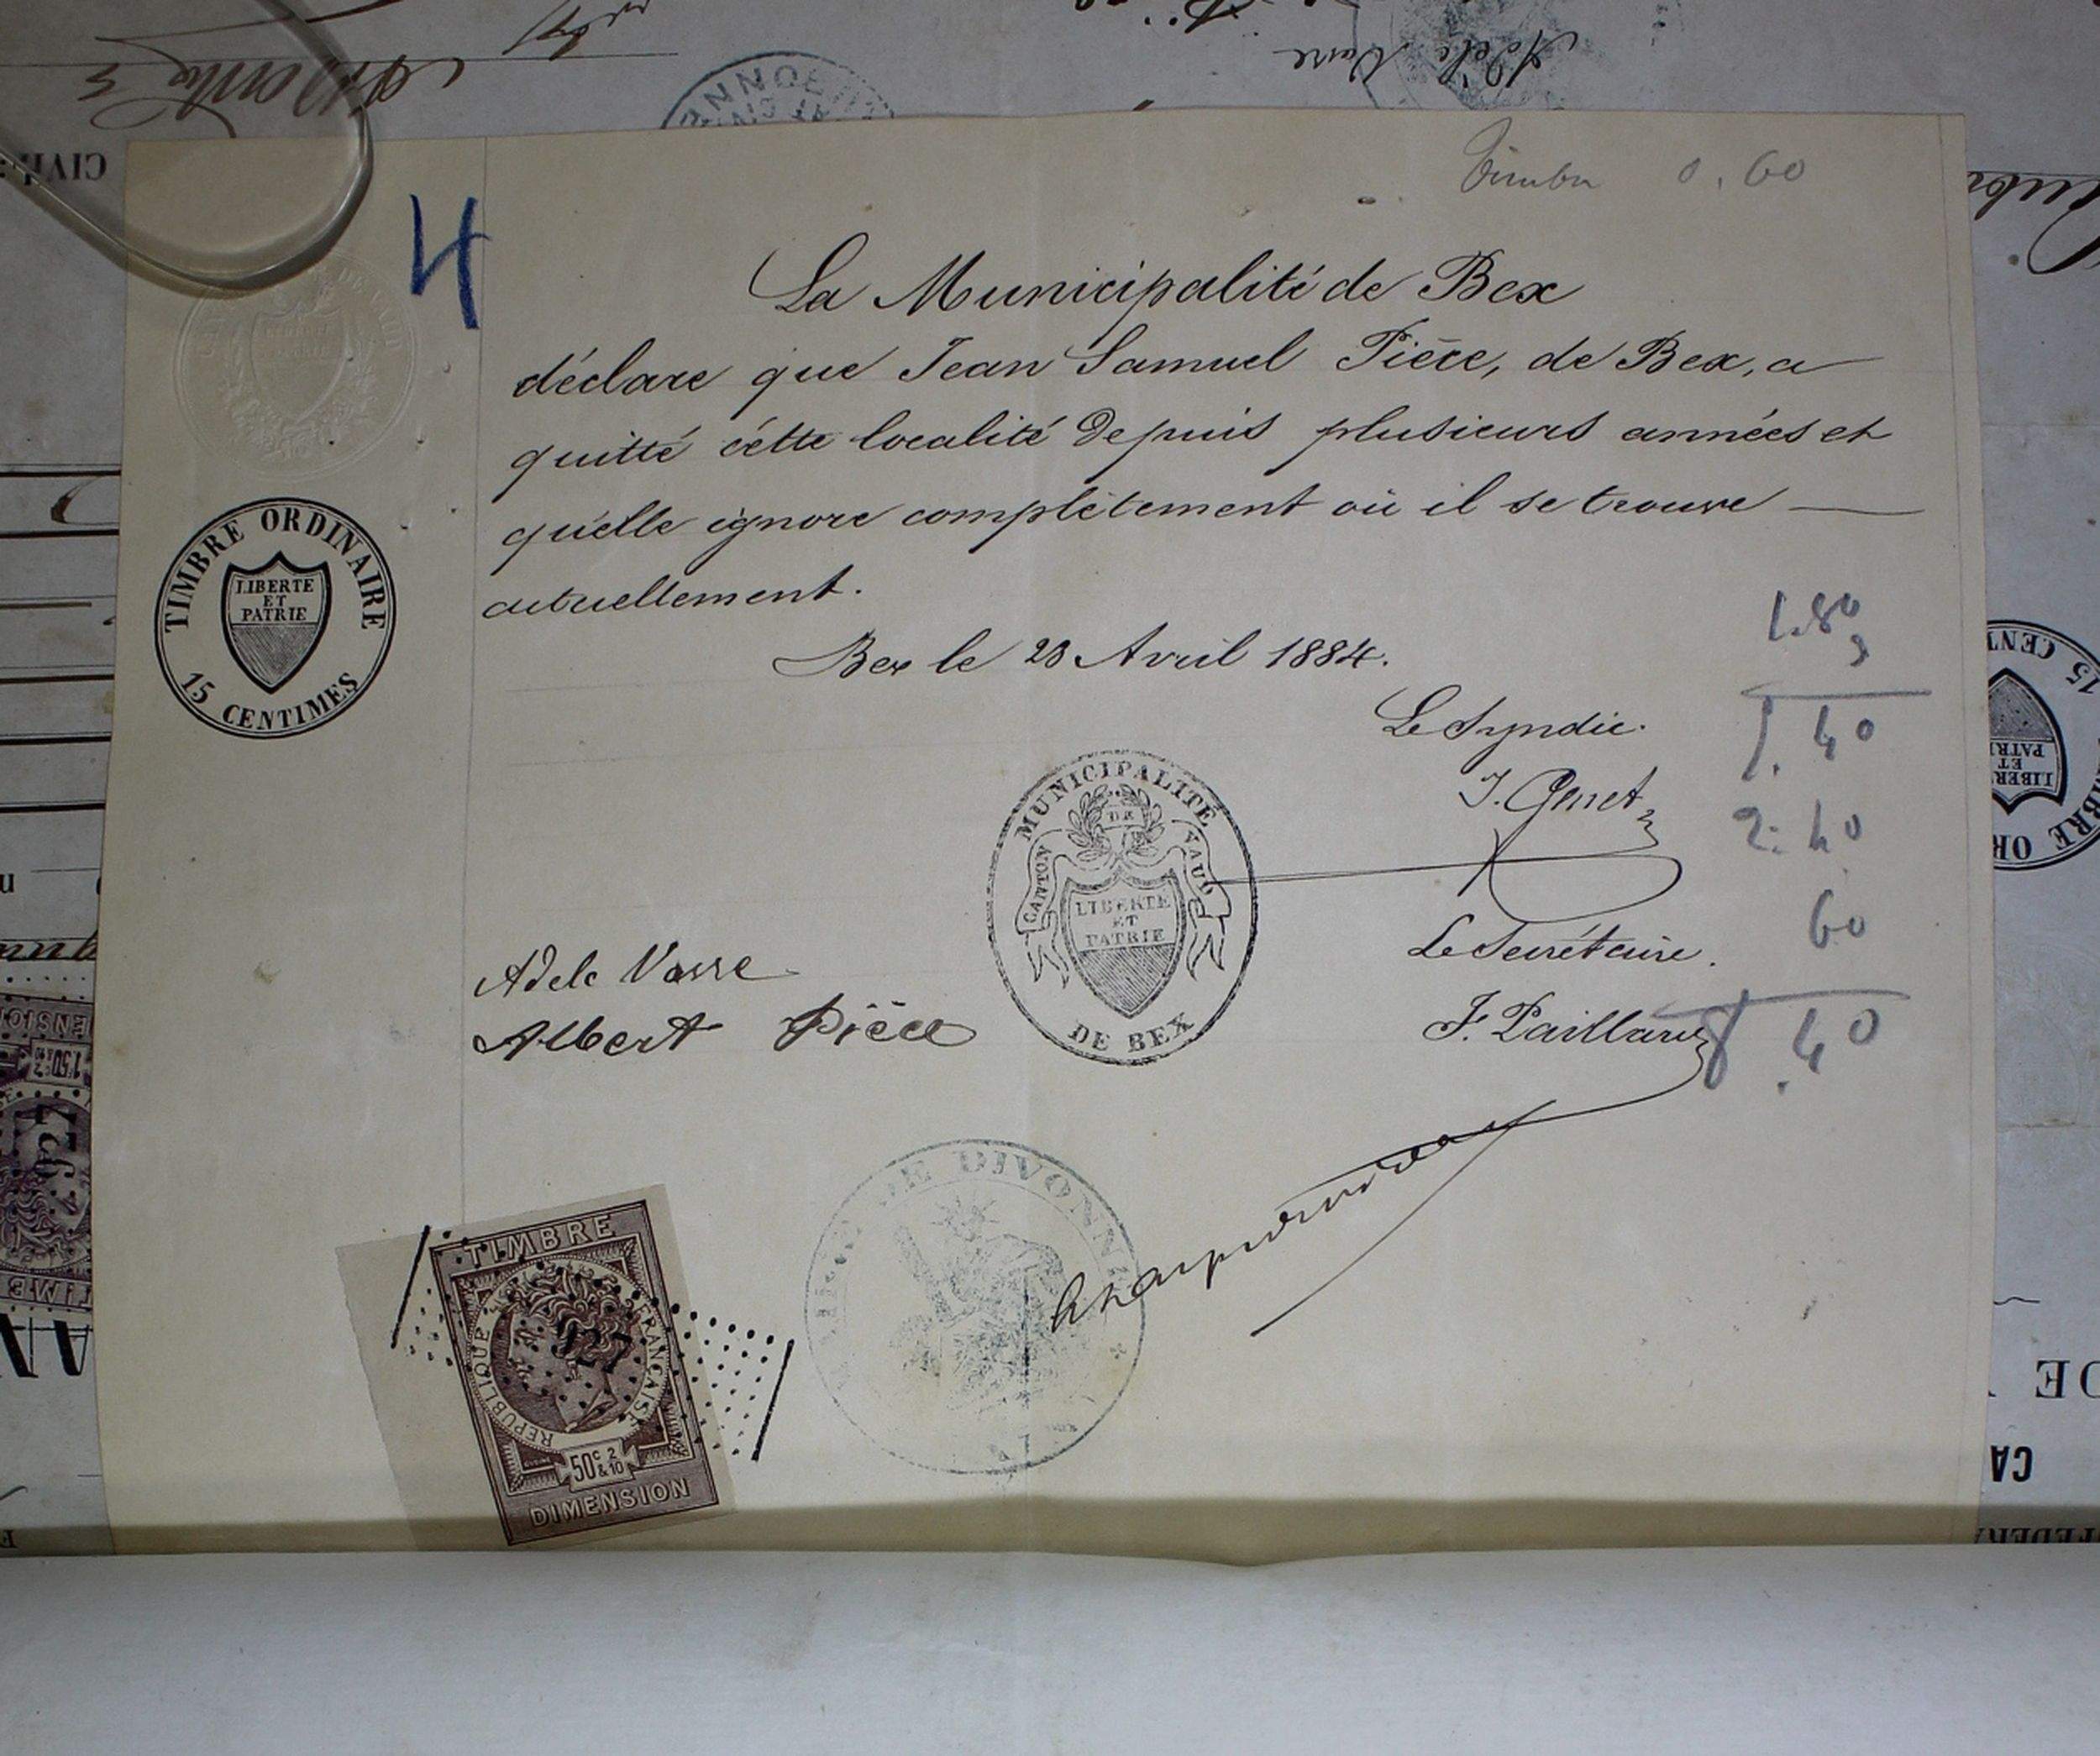 Timbre 0.60
4
La Municipalité de Bex
déclare que Jean Samuel Pièce, de Bex, a
quitté cette localité depuis plusieurs années et
qu'elle ignore complètement où il se trouve
actuellement.
Bex le 23 Avril 1884.
TIMBRE ORDINAIRE
LIBERTE
ET
PATRIE
15 CENTIMES
Le Syndic.
J. Genet
MUNICIPALITÉ
DE
CANTON VAUD
LIBERTE
ET
PATRIE
DE BEX
Le Secrétaire.
F. Paillard
1.80
1.40
2.40
60
.40
Adele Vasre
Albert Pièce
MAIRIE DE DIVONNE
AIN
TIMBRE
REPUBLIQUE FRANÇAISE
50c 2
&10
DIMENSION
CIVIL
Adele
15 CENT
LIBER
ET
PATRI
DE
CA